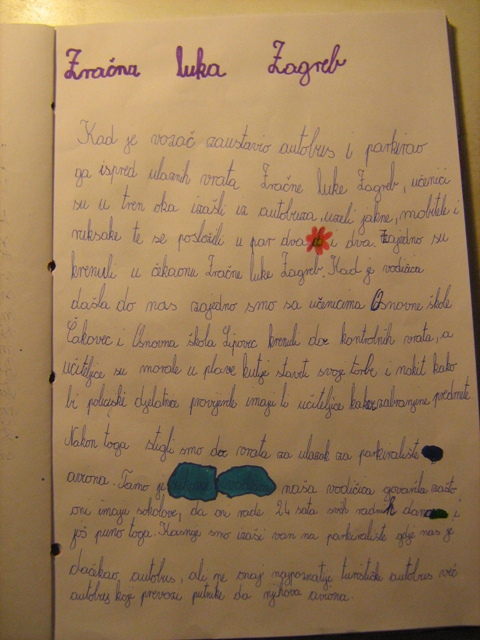 Zračna luka Zagreb
Kad je vozač zaustavio autobus i parkirao
ga ispred ulaznih vrata Zračne luke Zagreb, učenici
su u tren oka izašli iz autobusa, uzeli jakne, mobitele i
ruksake te se posložili u par dva i dva. Zajedno su
krenuli u čekaonu Zračne luke Zagreb. Kad je vodičica
došla do nas zajedno smo sa učenicima Osnovne škole
Čakovec i Osnovna škola Lipovec krenuli do kontrolnih vrata, a
učiteljice su morale u plave kutije staviti svoje torbe i nakit kako
bi policijski djelatnici provjerile imaju li učiteljice zabranjene predmete
Nakon toga stigli smo do vrata za ulazak za parkiralište
aviona. Tamo je naša vodičica govorila zašto
oni imaju sokolove, da oni rade 24 sata svih radnih dana i
još puno toga. Kasnije smo izašli van na parkiralište gdje nas je
dočekao autobus, ali ne onaj najpoznatiji turistički autobus već
autobus koji prevozi putnike do njihova aviona.